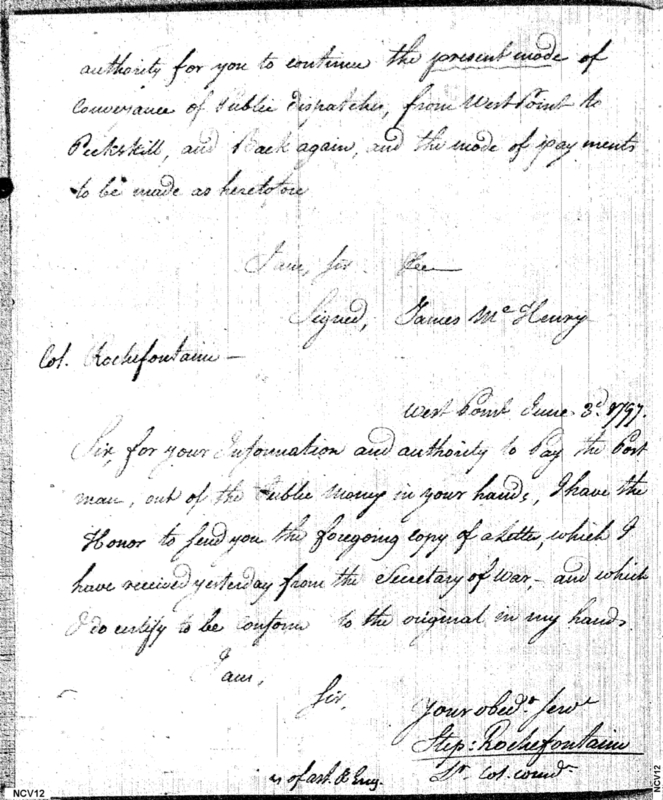 authority for you to continue the present mode of
Conveyance of Public dispatches, from West Point to
Peekskill, and Back again, and the mode of payments
to be made as heretofore
I am, Sir
Signed, James Mc Henry
Col. Rochefontaine —
West Point June 3d. 1797.
Sir, for your Information and authority to Pay the Post
man, out of the Public Money in your hands, I have the
Honor to send you the foregoing copy of a Letter, which I
have received yesterday from the Secretary of War, — and which
I do certify to be Conform to the original in my hands.
I am,
Sir,
Your obedt. Servt
Step: Rochefontaine
Lt. Col. comdt.
of art. & Eng.
NCV12
NCV12